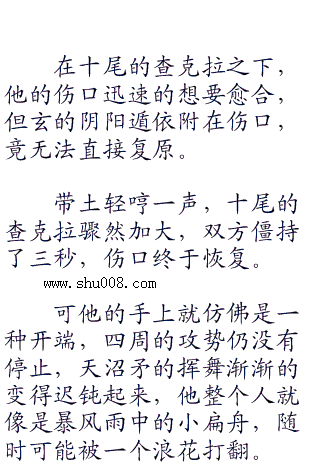 在十尾的查克拉之下，
他的伤口迅速的想要愈合，
但玄的阴阳遁依附在伤口，
竟无法直接复原。
带土轻哼一声，十尾的
查克拉骤然加大，双方僵持
了三秒，伤口终于恢复。
www.shu008.com
可他的手上就仿佛是一
种开端，四周的攻势仍没有
停止，天沼矛的挥舞渐渐的
变得迟钝起来，他整个人就
像是暴风雨中的小扁舟，随
时可能被一个浪花打翻。